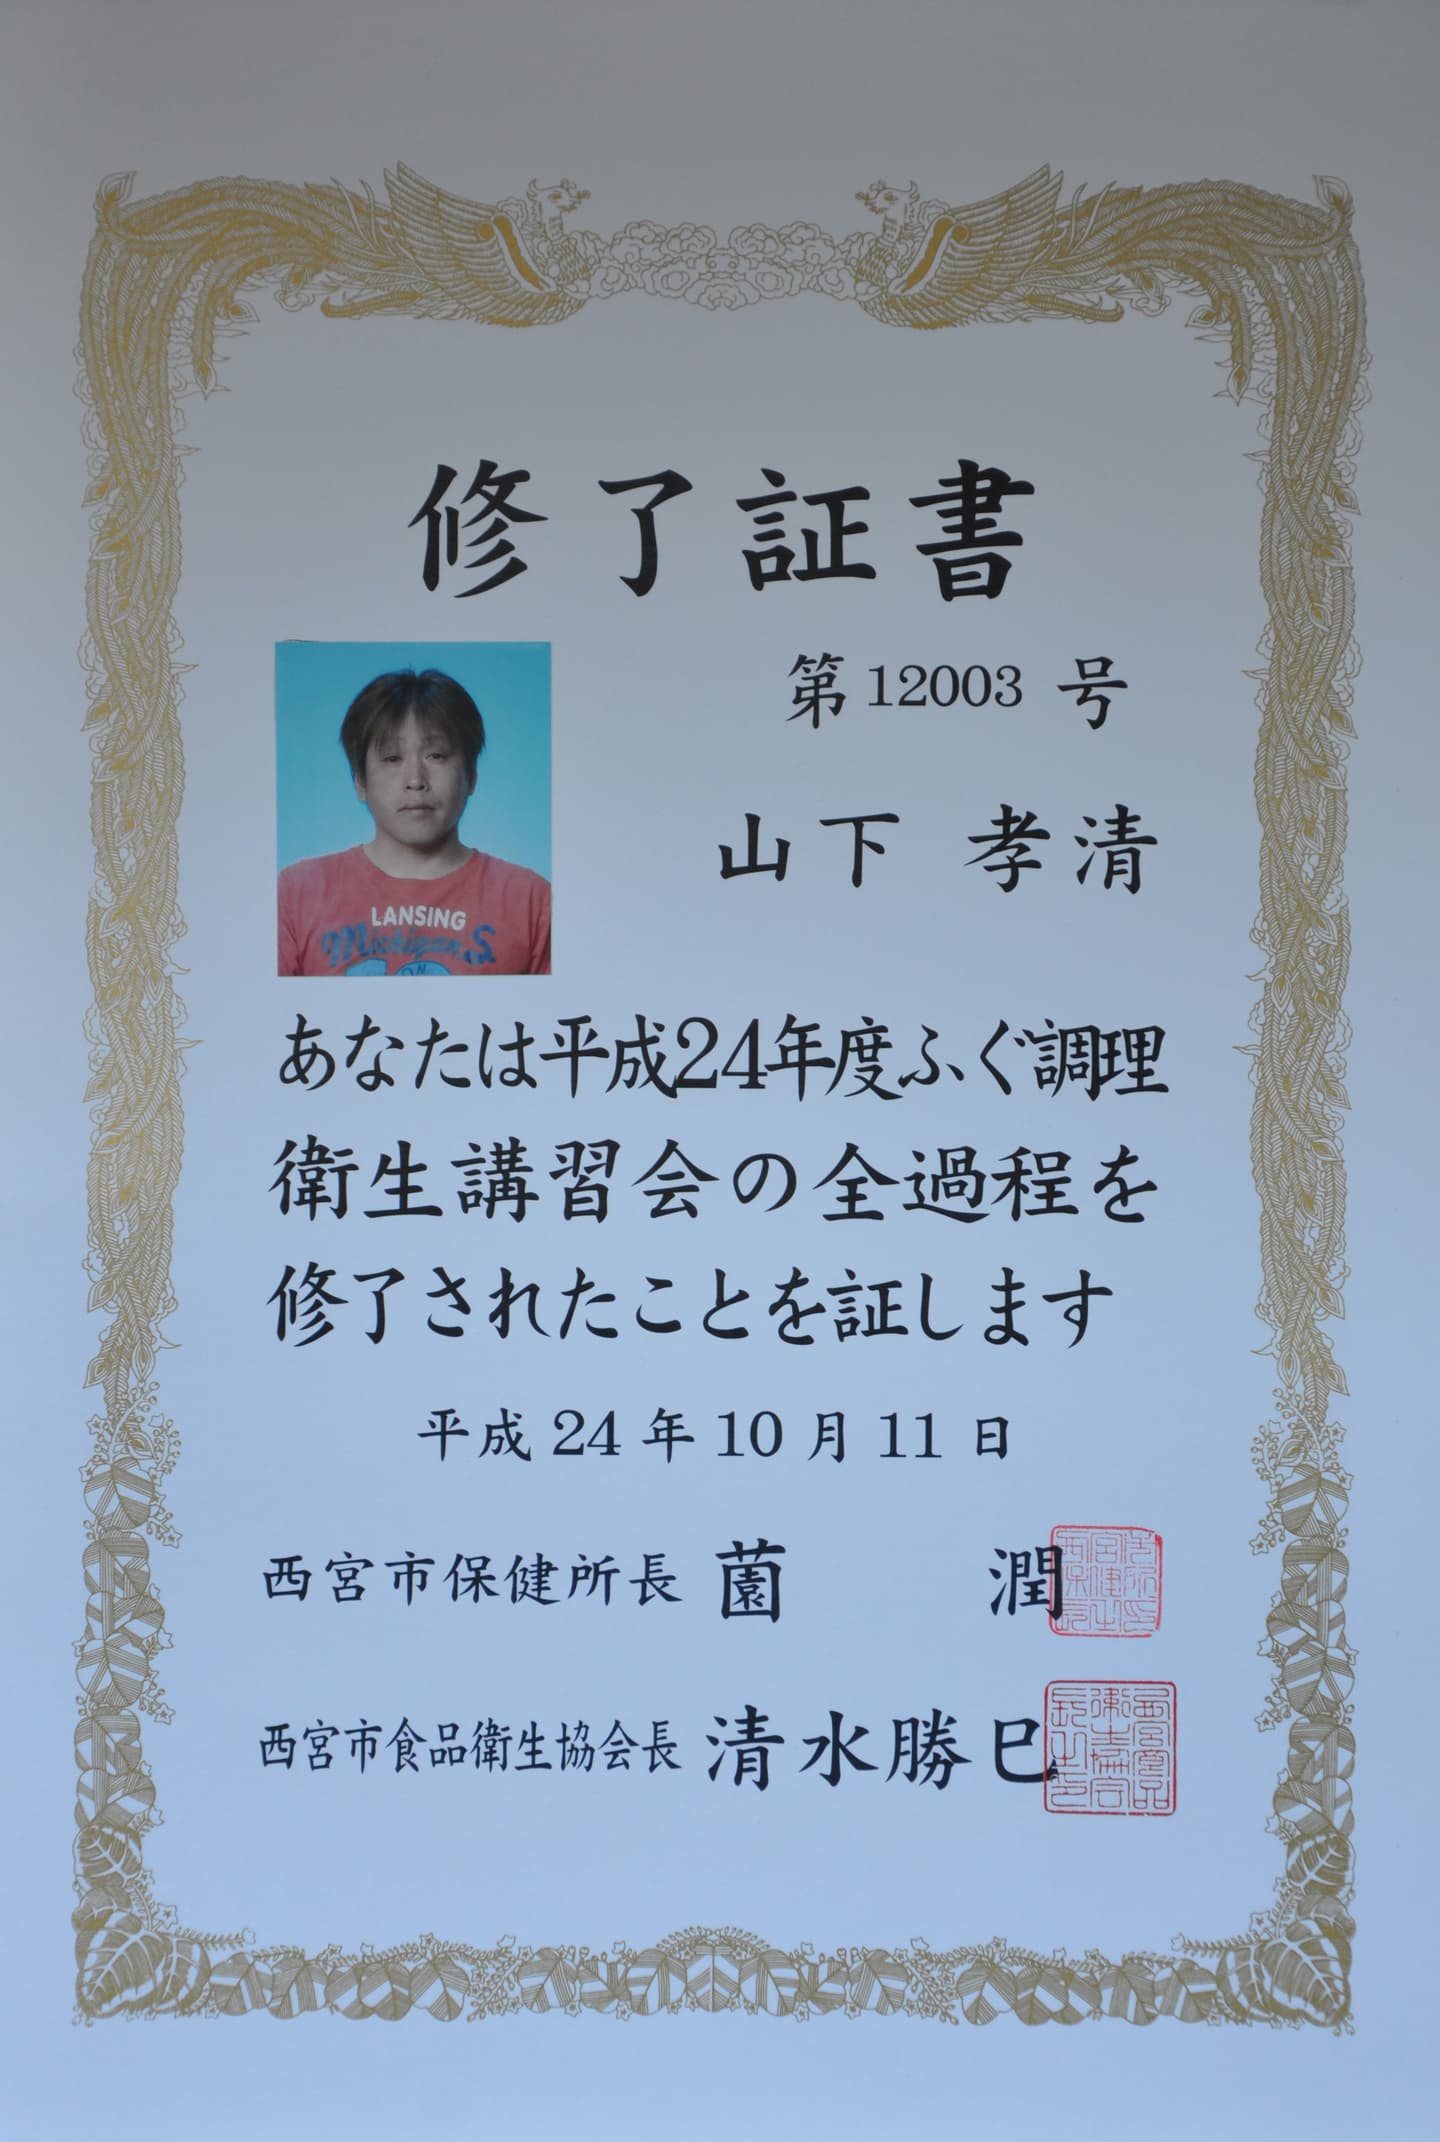 修了証書
第12003号
山下 孝清
LANSING
Michigan S.
あなたは平成24年度ふぐ調理
衛生講習会の全過程を
修了されたことを証します
平成24年10月11日
西宮市保健所長 薗 潤
西宮市食品衛生協会長 清水勝巳